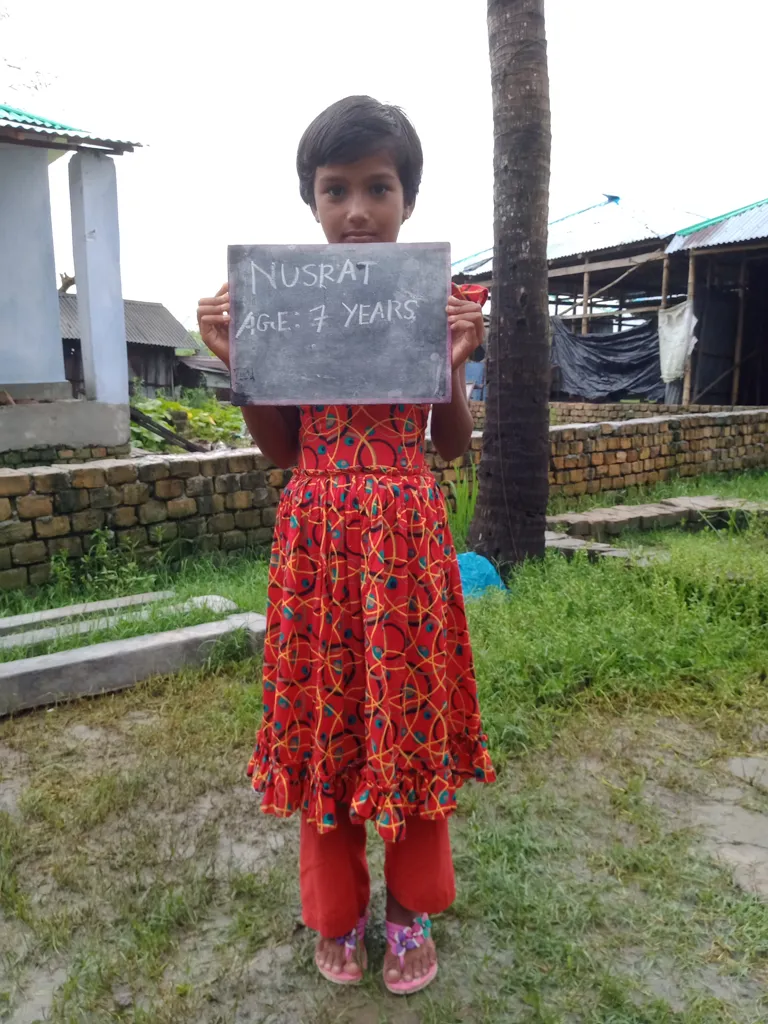 NUSRAT
AGE: 7 YEARS